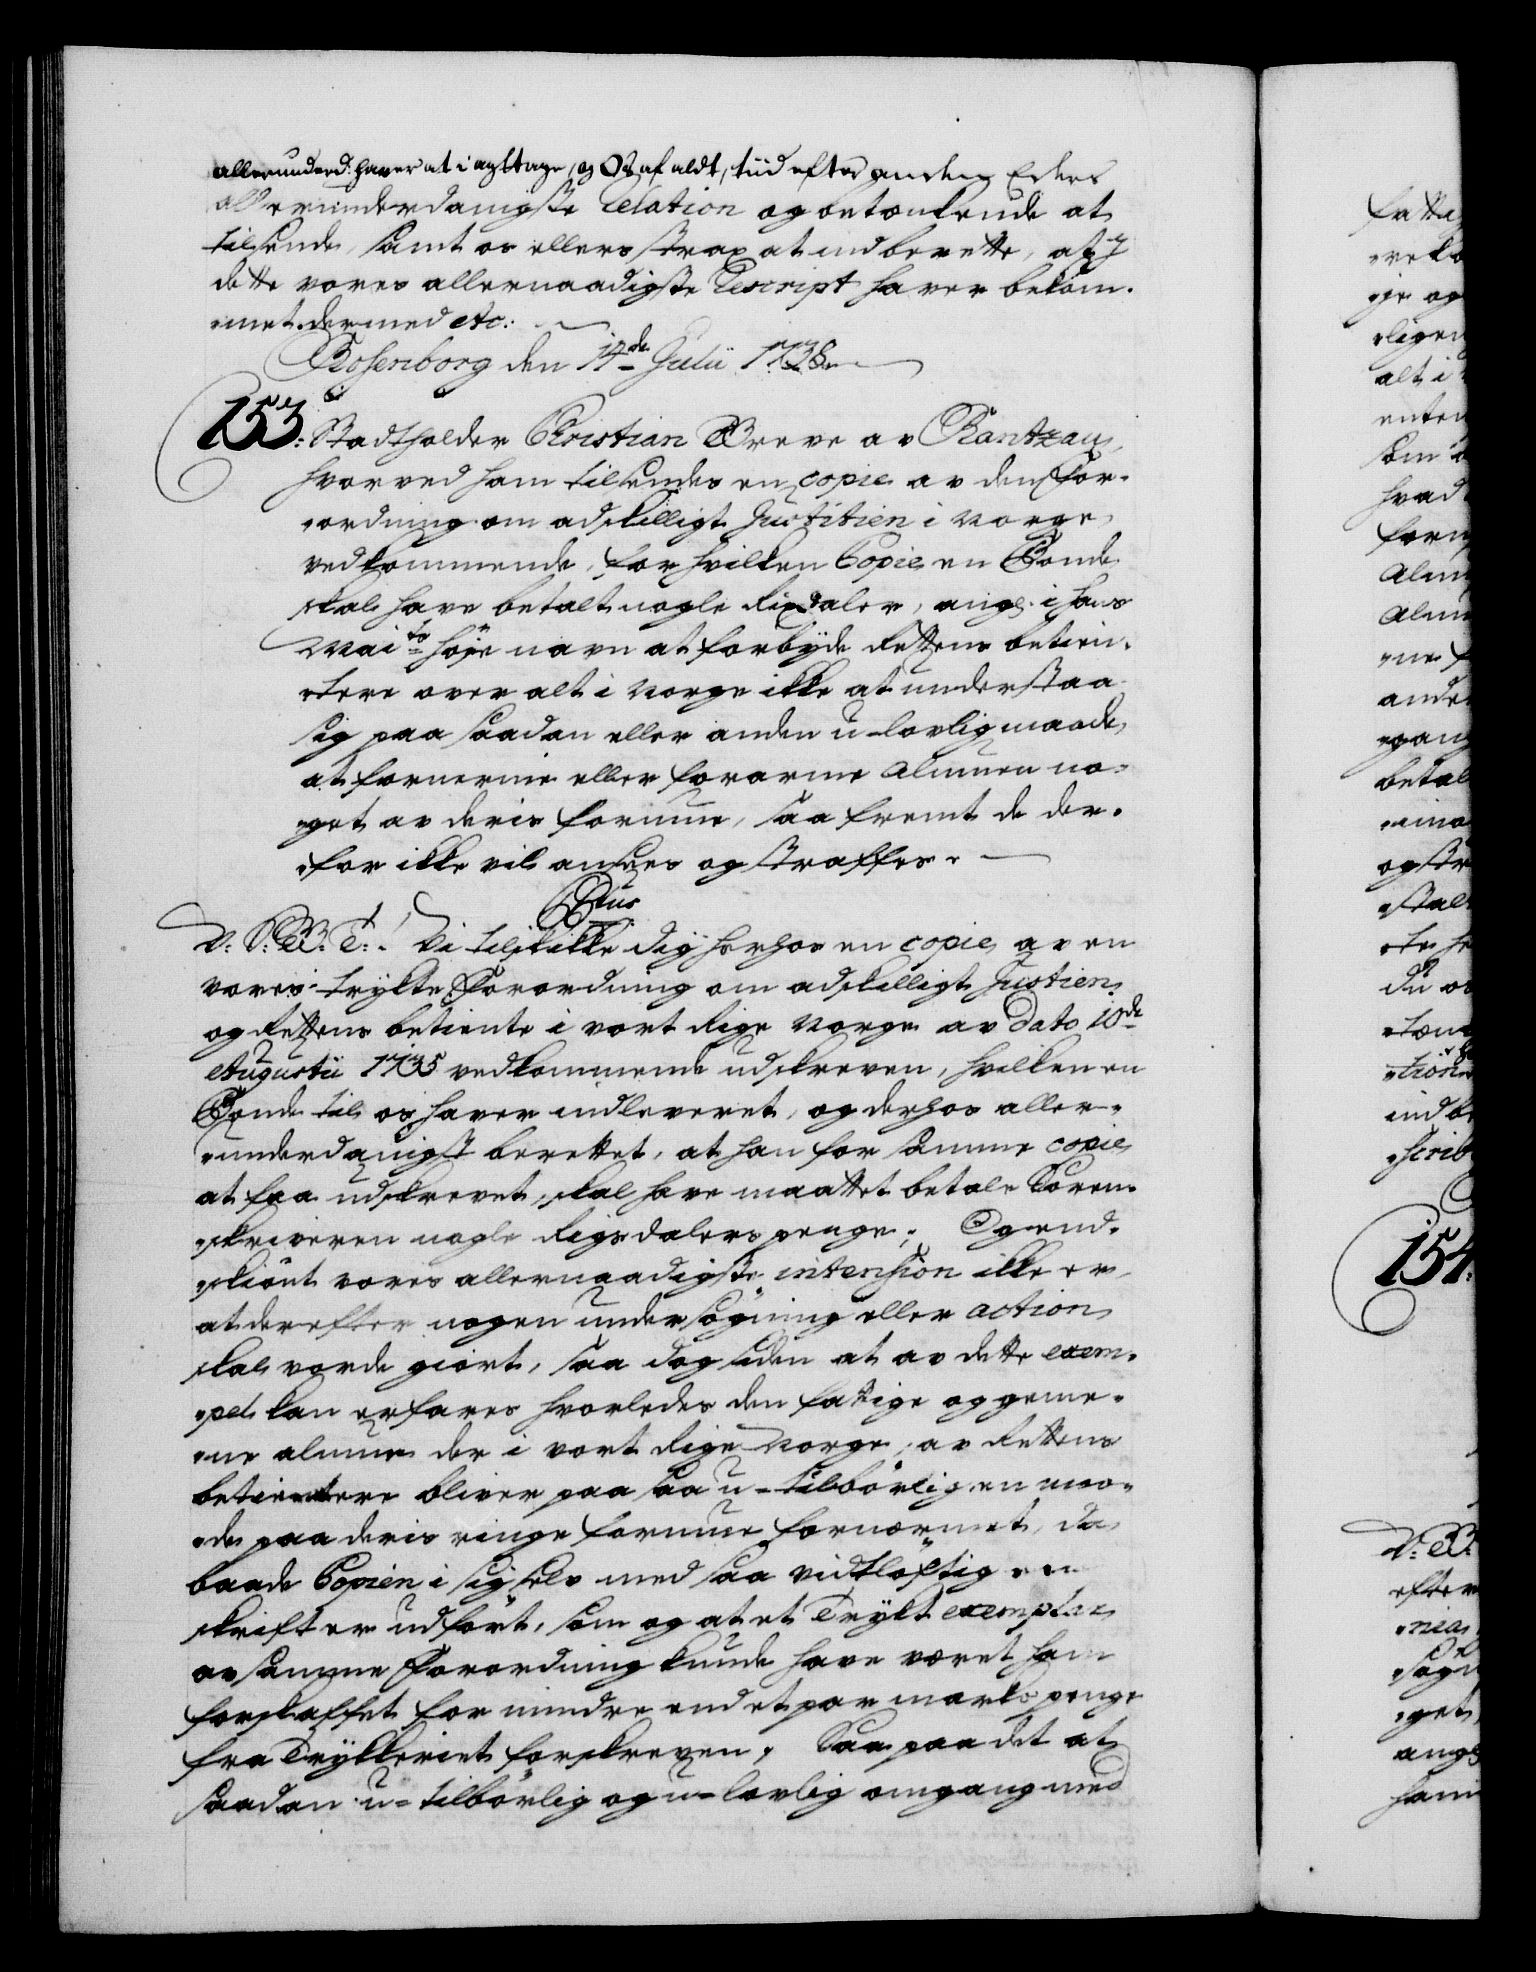 allerunderd: haver at i agttage, og Os af aldt, tiid efter anden Eders
allerunderdanigste Relation og betænkende at
tilsende, samt os ellers strax at indberette, at I
dette vores allernaadigste Rescript haver bekom-
-met. dermed etc:
Rosenborg den 14de Julii 1738.
153. Stadtholder Christian Greve av Rantzau,
hvorved ham tilsendes en copie av den For-
-ordning om adskilligt Justitien i Norge
vedkommende, for hvilken Copie en Bonde
skal have betalt nogle Rixdaler, angl. i hans
Maits høje navn at forbyde Rettens betien-
-tere over alt i Norge ikke at understaa
sig paa saadan eller anden u-lovlig maade,
at fornerme eller forarme Almuen no-
-get av deris formue, saa fremt de der-
-for ikke vil ansees og straffes.
Gus
V: S: B: T: Vi tilskikke dig herhos en copie av en
vores trykte Forordning om adskilligt Justien
og Rettens betiente i vort Rige Norge av Dato 10de
Augustii 1735 vedkommende udskreven, hvilken en
Bonde til os haver indleveret, og derhos aller-
-underdanigst berettet, at han for samme copie
at faa udskrevet, skal have maattet betale Soren-
-skriveren nogle Rigsdalers penge; Og end-
-skiønt vores allernaadigste intension ikke er,
at derefter nogen undersøgning eller action
skal vorde giort, saa dog siden at av dette exem-
-pel kan erfares hvorledes den fattige og geme-
-ne almue der i vort Rige Norge, av Rettens
betientere bliver paa saa u-tilbørlig en maa-
-de paa deris ringe formue fornærmet, da
baade Copien i sig selv med saa vidtløftig en
skrift er udført, som og at et Trykt exemplar
av samme Forordning kunde have været ham
forskaffet for mindre end et par marks penge
fra Trykkeriet forskreven, Saa paa det at
saadan u-tilbørlig og u-lovlig omgang med
154.